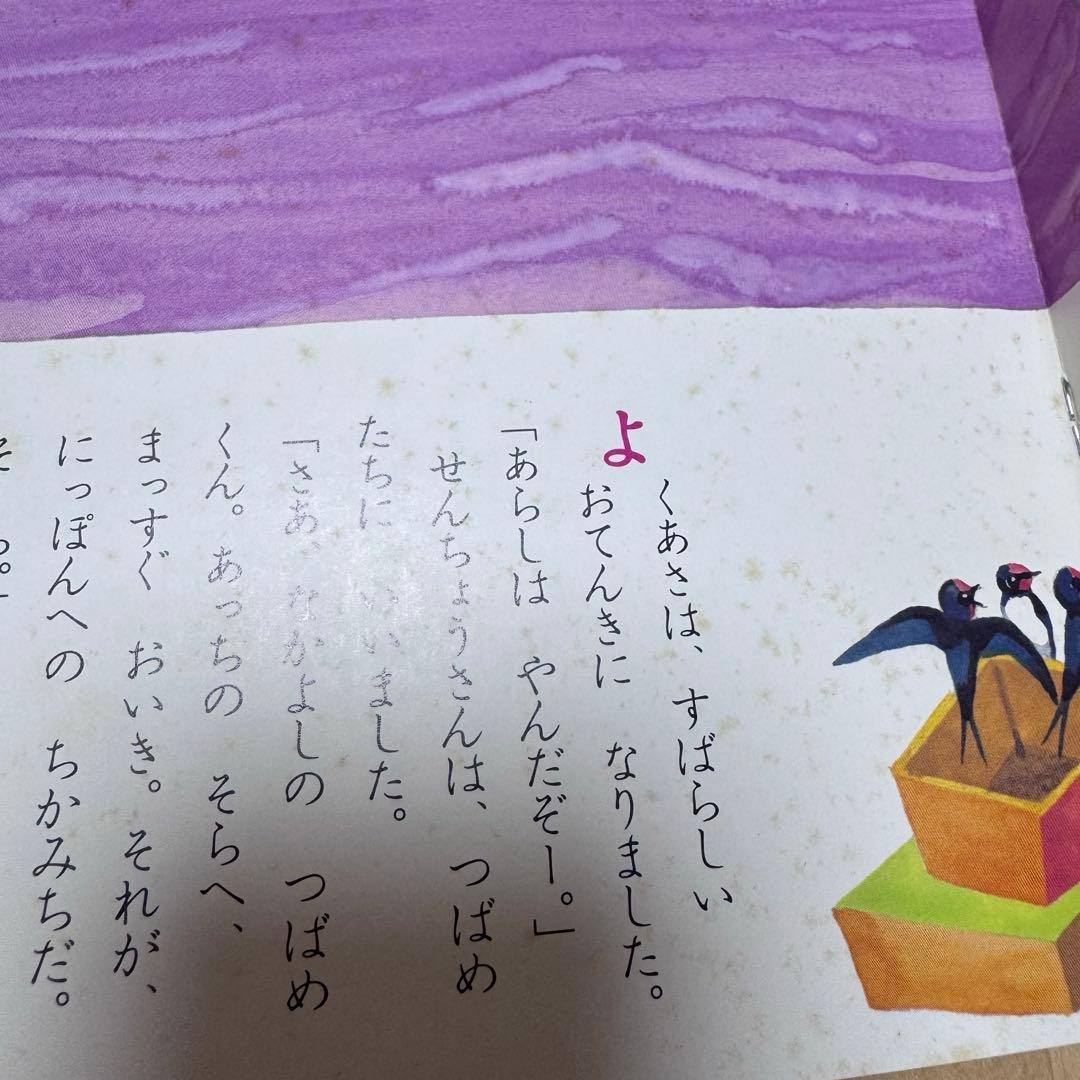 よくあさは、すばらしい
おてんきに なりました。
「あらしは やんだぞー。」
せんちょうさんは、つばめ
たちに いいました。
「さあ、なかよしの つばめ
くん。あっちの そらへ、
まっすぐ おいき。それが、
にっぽんへの ちかみちだ。